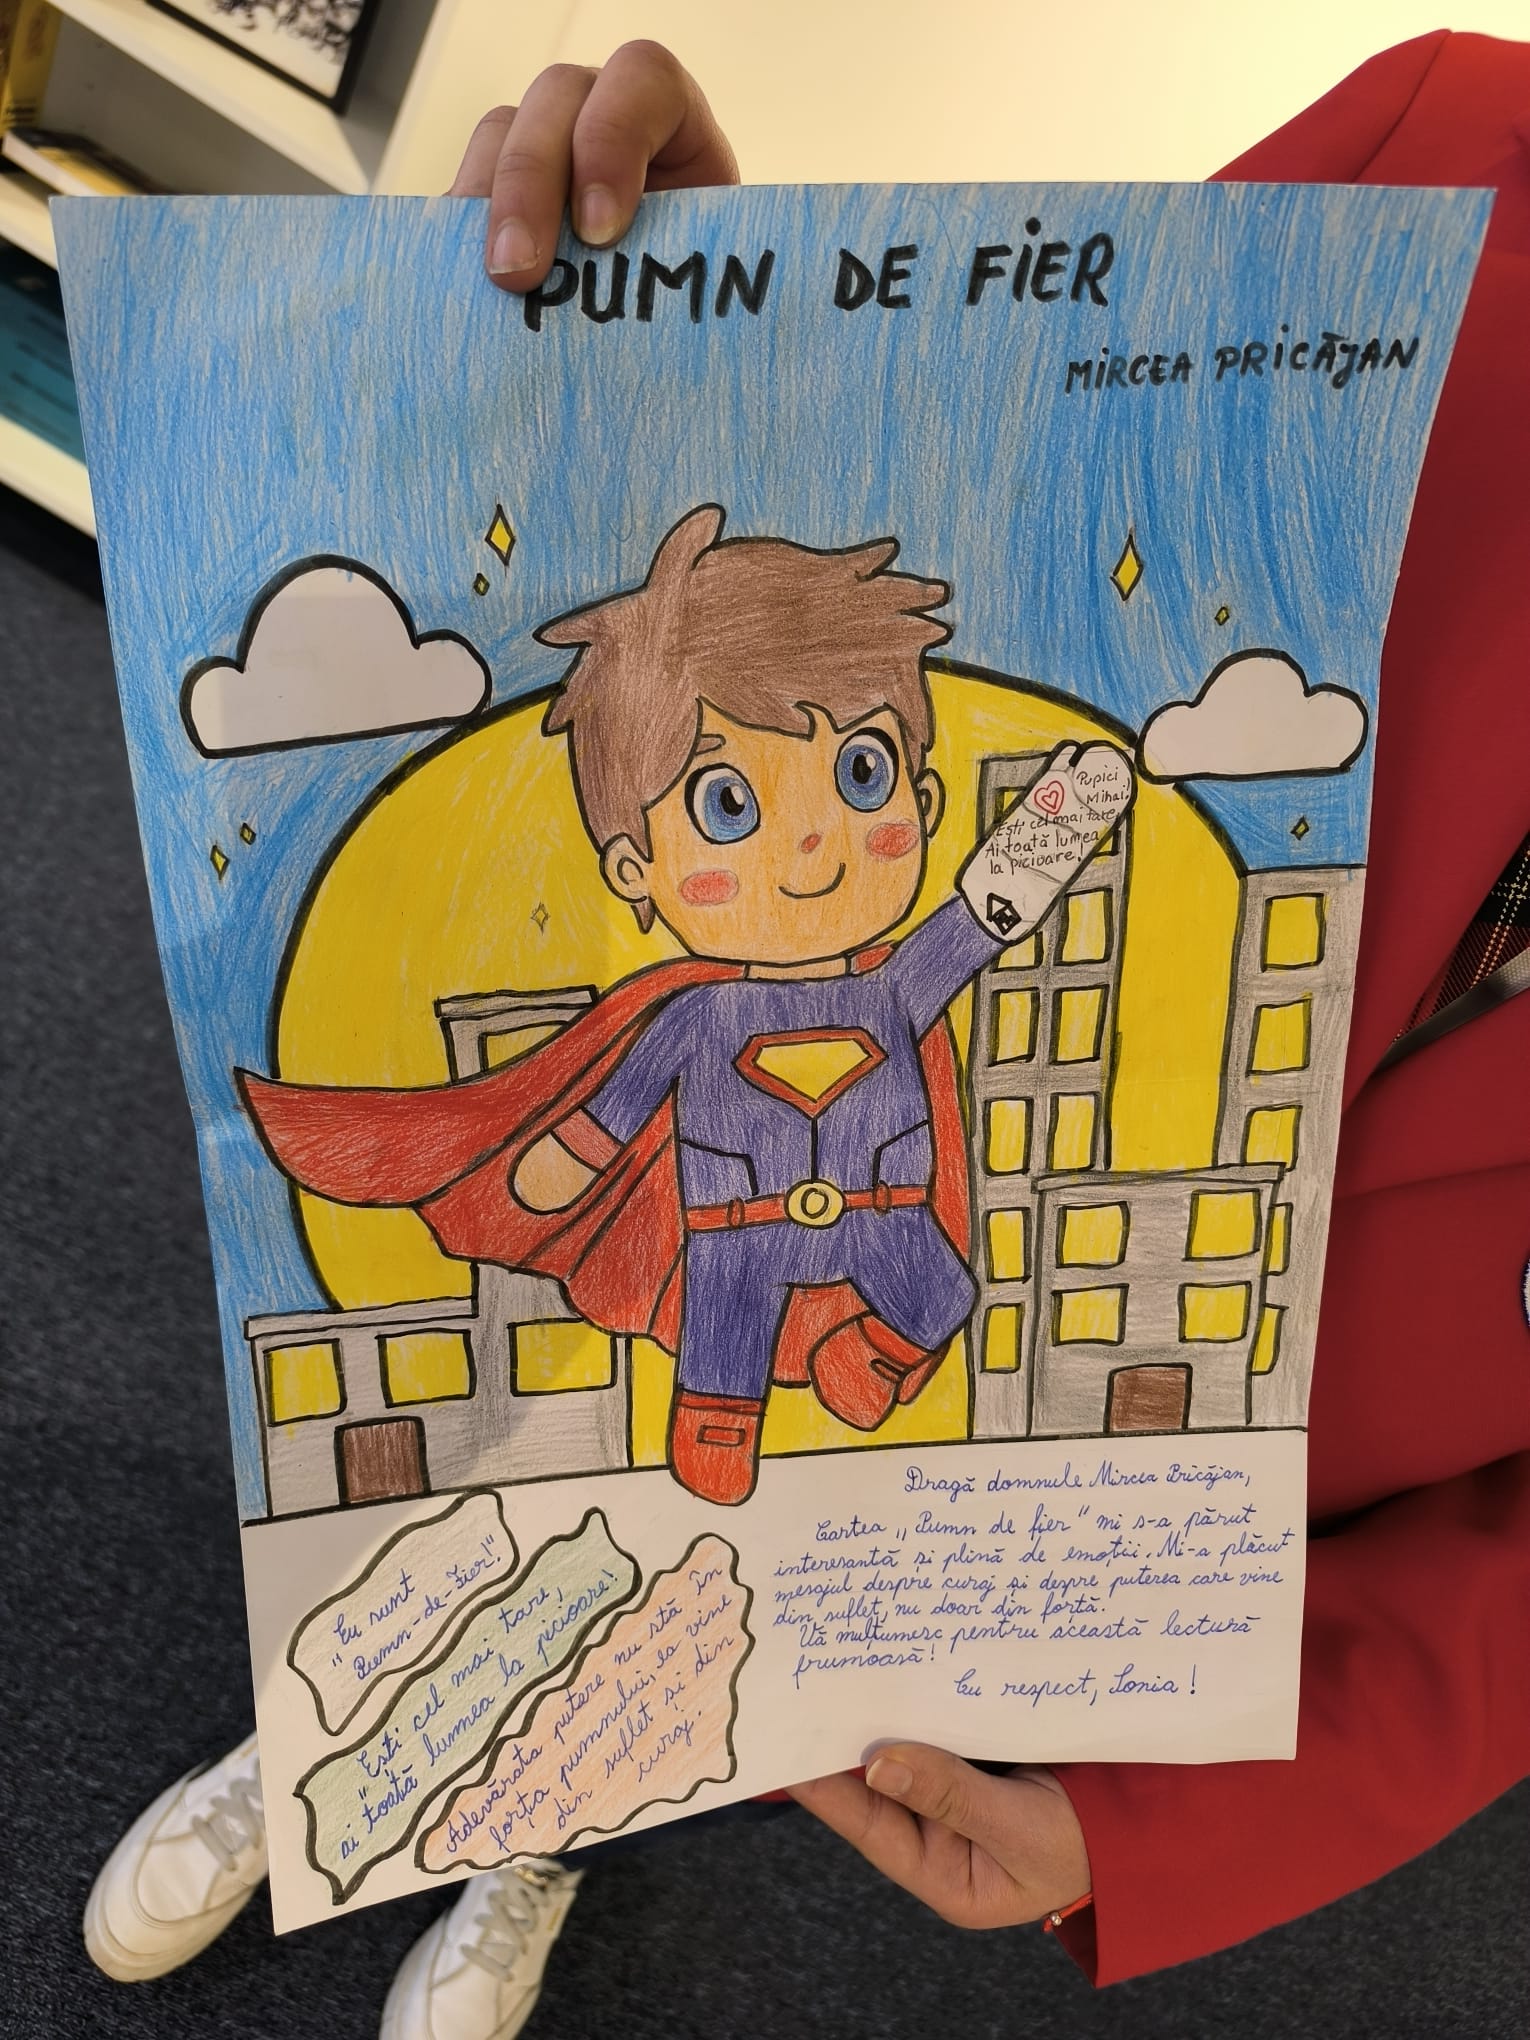 PUMN DE FiER
MiRCEA PRiCĂJAN
Pupici
Mihai!
Ești cel mai tare,
Ai toată lumea
la picioare!
Dragă domnule Mircea Pricăjan,
Cartea „Pumn de fier" mi s-a părut
interesantă și plină de emoții. Mi-a plăcut
mesajul despre curaj și despre puterea care vine
din suflet, nu doar din forță.
Vă mulțumesc pentru această lectură
frumoasă!
Cu respect, Sonia!
Eu sunt
"Pumn-de-Fier!"
"Ești cel mai tare,
ai toată lumea la picioare!
Adevărata putere nu stă în
forța pumnului, ea vine
din suflet și din
curaj.